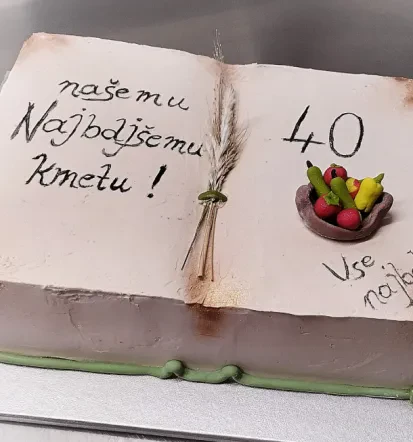 našemu
Najboljšemu
kmetu !
40
Vse